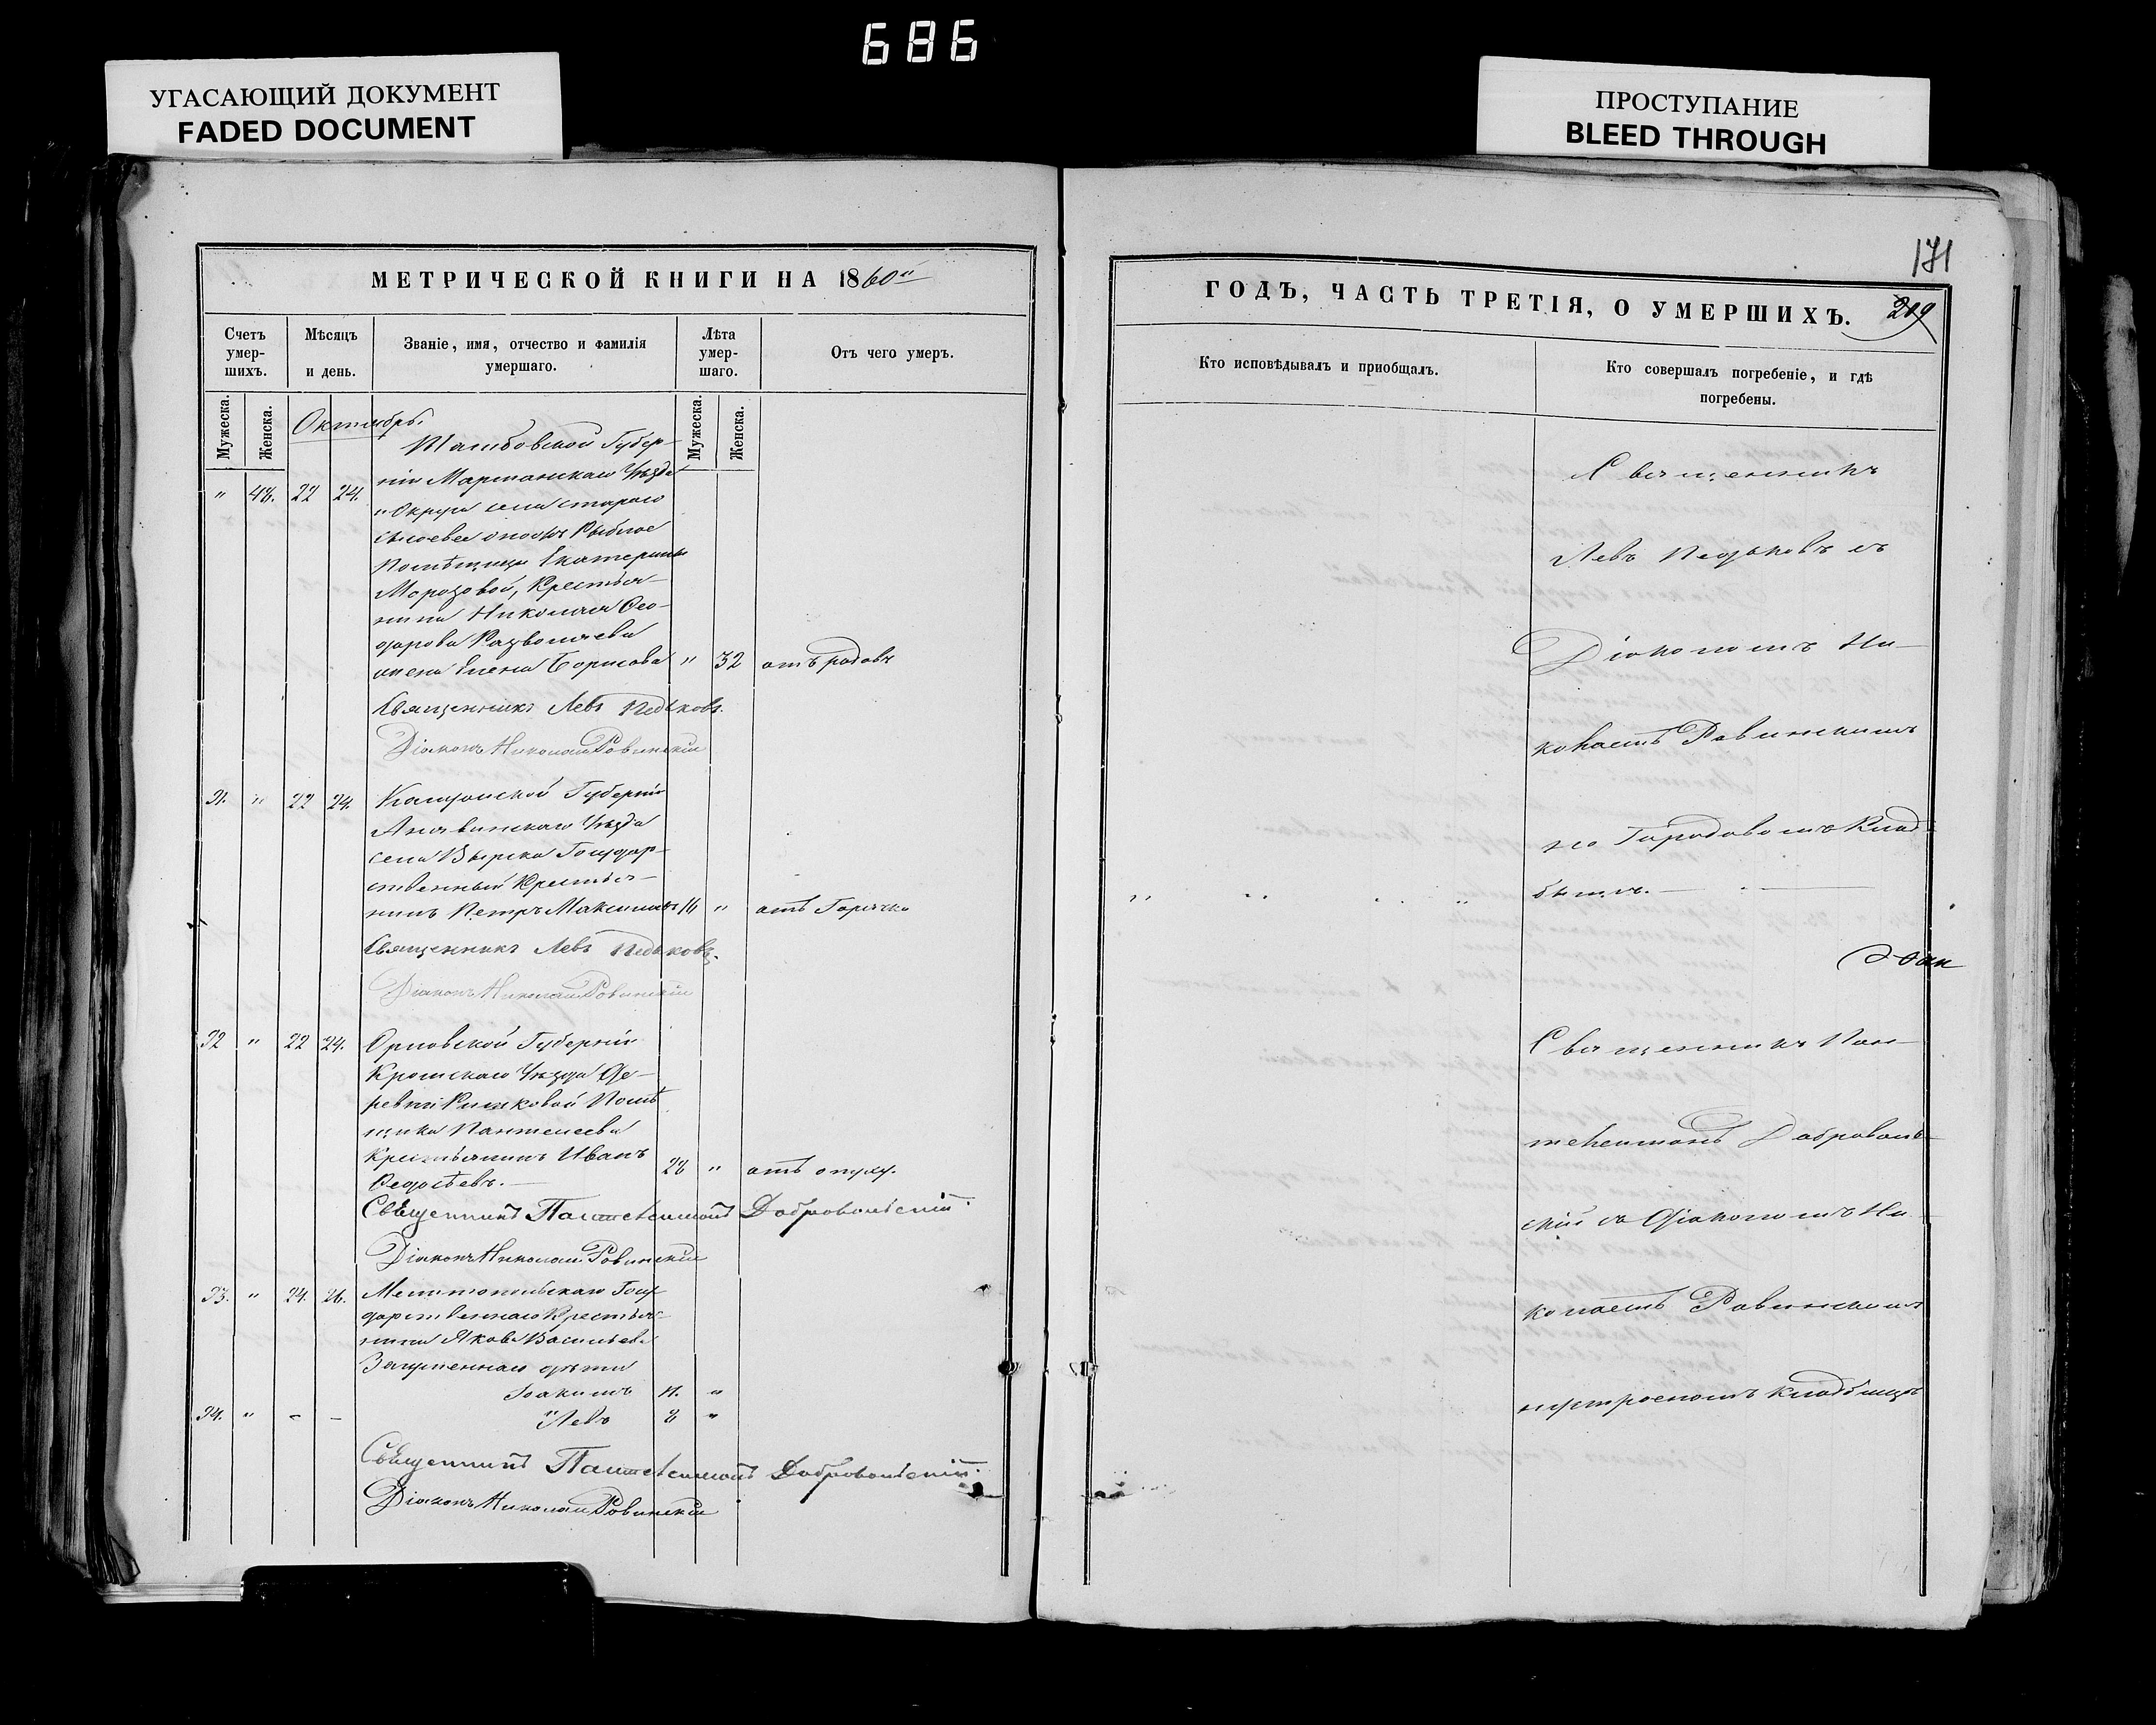 686
УГАСАЮЩИЙ ДОКУМЕНТ
FADED DOCUMENT
ПРОСТУПАНИЕ
BLEED THROUGH
МЕТРИЧЕСКОЙ КНИГИ НА 1860
Счетъ умер-шихъ.
Мѣсяцъ и день.
Званіе, имя, отчество и фамилія умершаго.
Лѣта умер-шаго.
Отъ чего умеръ.
Мужеска.
Женска.
Мужеска.
Женска.
Октябрь.
Тамбовской Губер-
" 48. 22 24.
ніи Уѣзда
села стараго
Рыбное
Помѣщицы Екатерины
Морозовой, Крестья-
нина Николая Ѳео-
дорова
жена Елена Борисова " 32 отъ родовъ
Священникъ Левъ Педьковъ.
Діаконъ Николай Ровинскій
91. " 22 24. Губерніи
Уѣзда
села Государ-
ственный Крестья-
нинъ Петръ Максимовъ 16 " отъ Горячки
Священникъ Левъ Педьковъ.
Діаконъ Николай Ровинскій
92 " 22 24. Орловской Губерніи
Кромскаго Уѣзда Де-
ревни Помѣ
щика Пантелеева
Крестьянинъ Иванъ 28 " отъ
Ѳедосѣевъ.
Священникъ Пантелеимонъ Добровольскій.
Діаконъ Николай Ровинскій
93. " 24. 26. Мелитопольскаго Госу
дарственнаго Крестья-
нина Якова Васильева
дѣти
Іоакимъ 11. "
94. " - - Левъ 8 "
Священникъ Пантелеимонъ Добровольскій.
Діаконъ Николай Ровинскій
171
ГОДЪ, ЧАСТЬ ТРЕТІЯ, О УМЕРШИХЪ.
209
Кто исповѣдывалъ и приобщалъ.
Кто совершалъ погребеніе, и гдѣ погребены.
Священникъ
Левъ Педьковъ съ
Діакономъ Ни-
колаемъ Ровинскимъ
на Городовомъ Клад-
бищѣ.
Священникъ Пан-
телеимонъ Доброволь-
скій съ Діакономъ Ни-
колаемъ Ровинскимъ
кладбищѣ